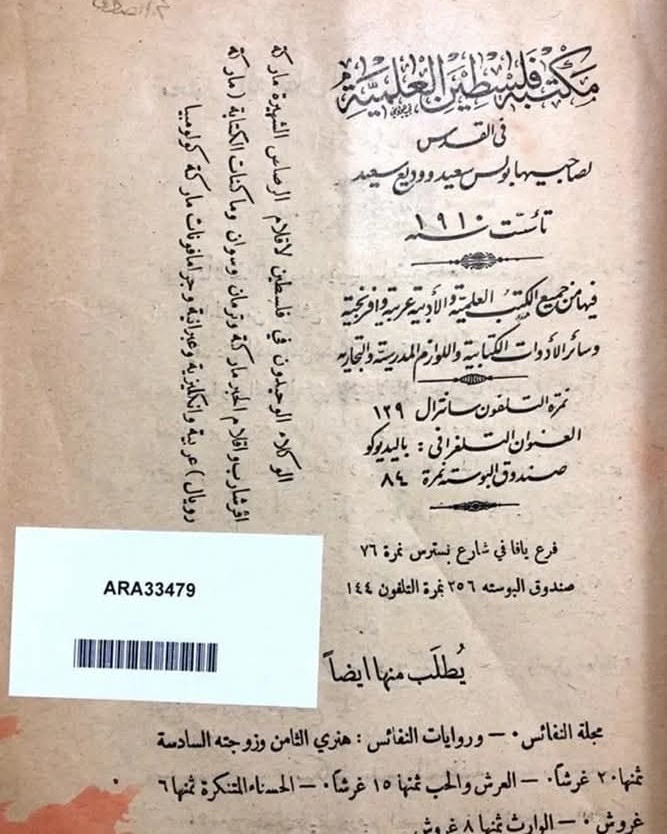 مكتبة فلسطين العلمية
في القدس
لصاحبيها بولس سعيد ووديع سعيد
تأسست سنة ١٩١٠
فيها من جميع الكتب العلمية والأدبية عربية وافرنجية
وسائر الأدوات الكتابية واللوازم المدرسية والتجارية
نمرة التلفون سانترال ١٣٩
العنوان التلغرافي : باليديوكو
صندوق البوسته نمرة ٨٤
فرع يافا في شارع بسترس نمرة ٧٦
صندوق البوسته ٢٥٦ نمرة التلفون ١٤٤
الوكلاء الوحيدون في فلسطين لاقلام الرصاص الشهيرة ماركة
اڤرشارب واقلام الحبر ماركة وترمان وسوان وماكنات الكتابة (ماركة
رويال) عربية وانكليزية وعبرانية وجرامافونات ماركة كولومبيا
ARA33479
يُطلَب منها ايضاً
مجلة النفائس ٠ — وروايات النفائس : هنري الثامن وزوجته السادسة
ثمنها ٢٠ غرشاً ٠ — العرش والحب ثمنها ١٥ غرشاً ٠ — الحسناء المتنكرة ثمنها ٦
غروش ٠ — الوارث ثمنها ٨ غروش